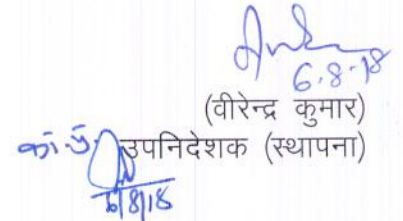 6.8.18
(वीरेन्द्र कुमार)
का.प्र. उपनिदेशक (स्थापना)
6/8/18